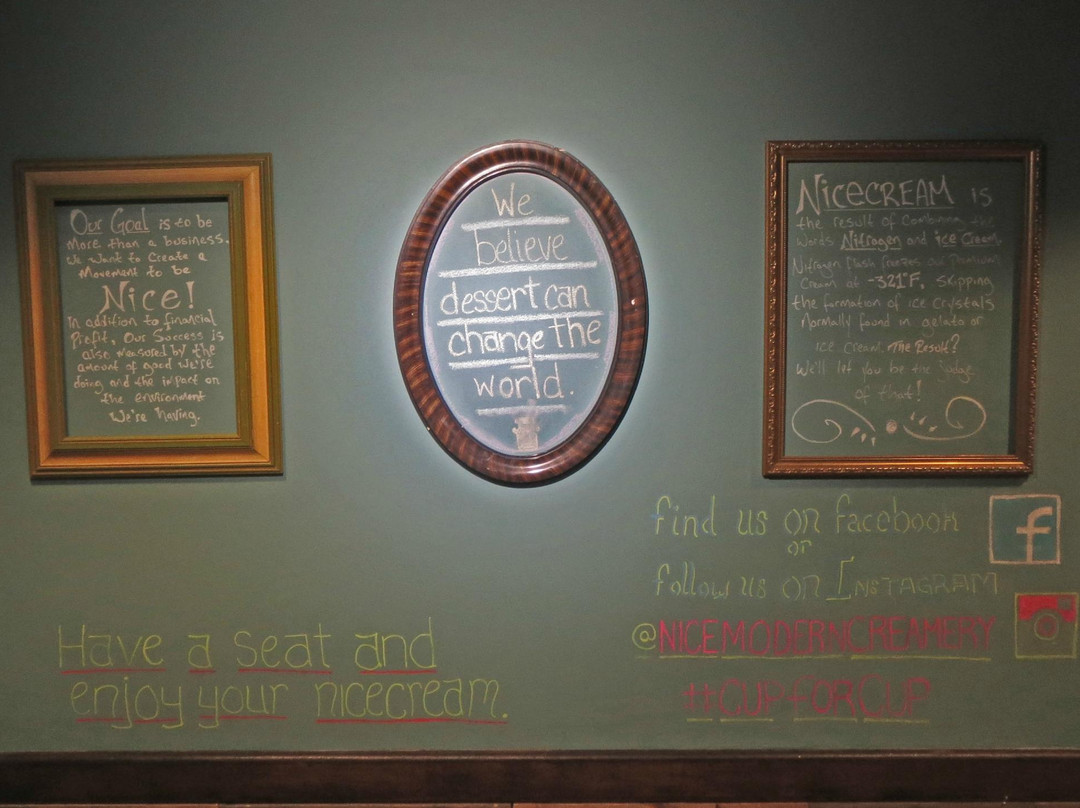 Our Goal is to be
More than a business.
We want to Create a
Movement to be
Nice!
In addition to financial
Profit, Our Success is
also measured by the
amount of good We're
doing and the impact on
the environment
We're having.
We
believe
dessert can
change the
world.
NICECREAM is
the result of Combining the
words Nitrogen and ice Cream.
Nitrogen flash freezes our Premium
Cream at -321°F, Skipping
the formation of ice crystals
Normally found in gelato or
ice cream. The Result?
We'll let you be the judge
of that!
find us on facebook
f
or
follow us on INSTAGRAM
@NICEMODERNCREAMERY
#CUPFORCUP
Have a seat and
enjoy your nicecream.